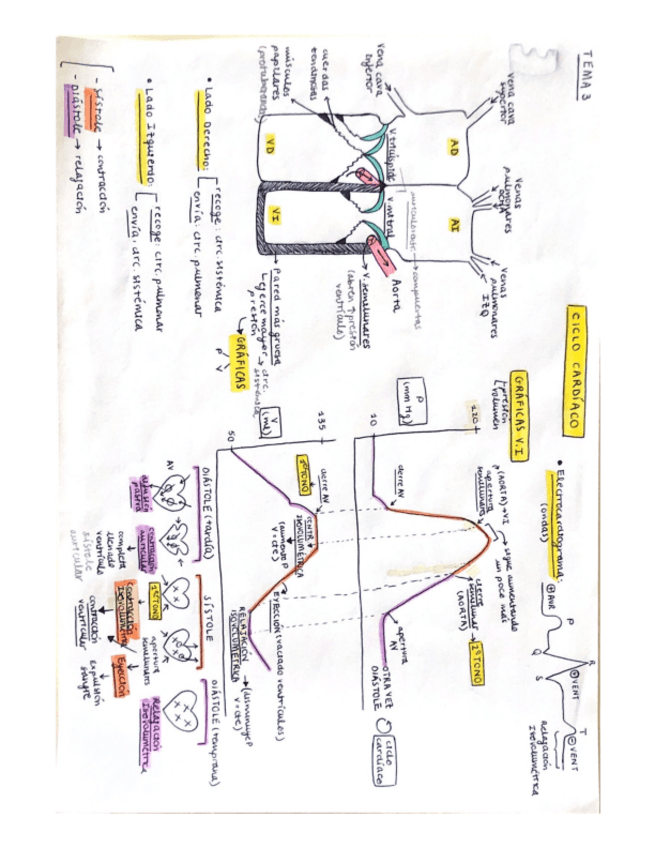 TEMA 3
CICLO CARDÍACO
Vena cava superior
Venas pulmonares
Venas pulmonares IZQ
Vena cava inferior
AD
AI
V. tricúspide
V. mitral
Aorta
cuerdas tendinosas
músculos papilares
VD
VI
V. semilunares
(abren ↑ presión ventrículo)
pared más gruesa
↳ ejerce mayor presión → circ. sistémica
• Lado Derecho:
recoge: circ. sistémica
envía: circ. pulmonar
• Lado Izquierdo:
recoge: circ. pulmonar
envía: circ. sistémica
- Sístole → contracción
- Diástole → relajación
GRÁFICAS
P
V
• Electrocardiograma:
(ondas)
P
Q
R
S
T
AUR
VENT
VENT
Relajación Isovolumétrica
GRÁFICAS V.I
presión
volumen
P (mm Hg)
120
10
cierre AV
apertura semilunares
(AORTA) → VI
sigue aumentando un poco más
cierre semilunar (AORTA) → 2º TONO
apertura AV
OTRA VEZ DIÁSTOLE
ciclo cardíaco
V (ml)
135
50
cierre AV
1º TONO
CONTR. ISOVOLUMÉTRICA
(aumento P V=cte)
EYECCIÓN (vaciado ventrículos)
RELAJACIÓN ISOVOLUMÉTRICA → (disminuye P V=cte)
DIÁSTOLE (tardía)
SÍSTOLE
DIÁSTOLE (temprana)
AV
contracción auricular
completa llenado ventrículo
sístole auricular
1º TONO
Contracción Isovolumétrica
contracción ventricular
apertura semilunares
Eyección
expulsión sangre
Relajación Isovolumétrica